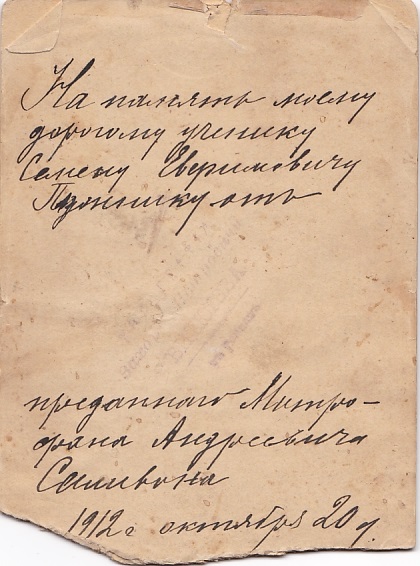 На память моему
дорогому ученику
Семену Евфимовичу
отъ
преданнаго Митро-
фана Андреевича
Саливона
1912 г октября 20 д.